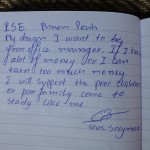 BSE Phnom Penh
My dream I want to be
front office manager. If I have
a lot of money or I can
earn too much money
I will support the poor children
or poor family come to
study like me.